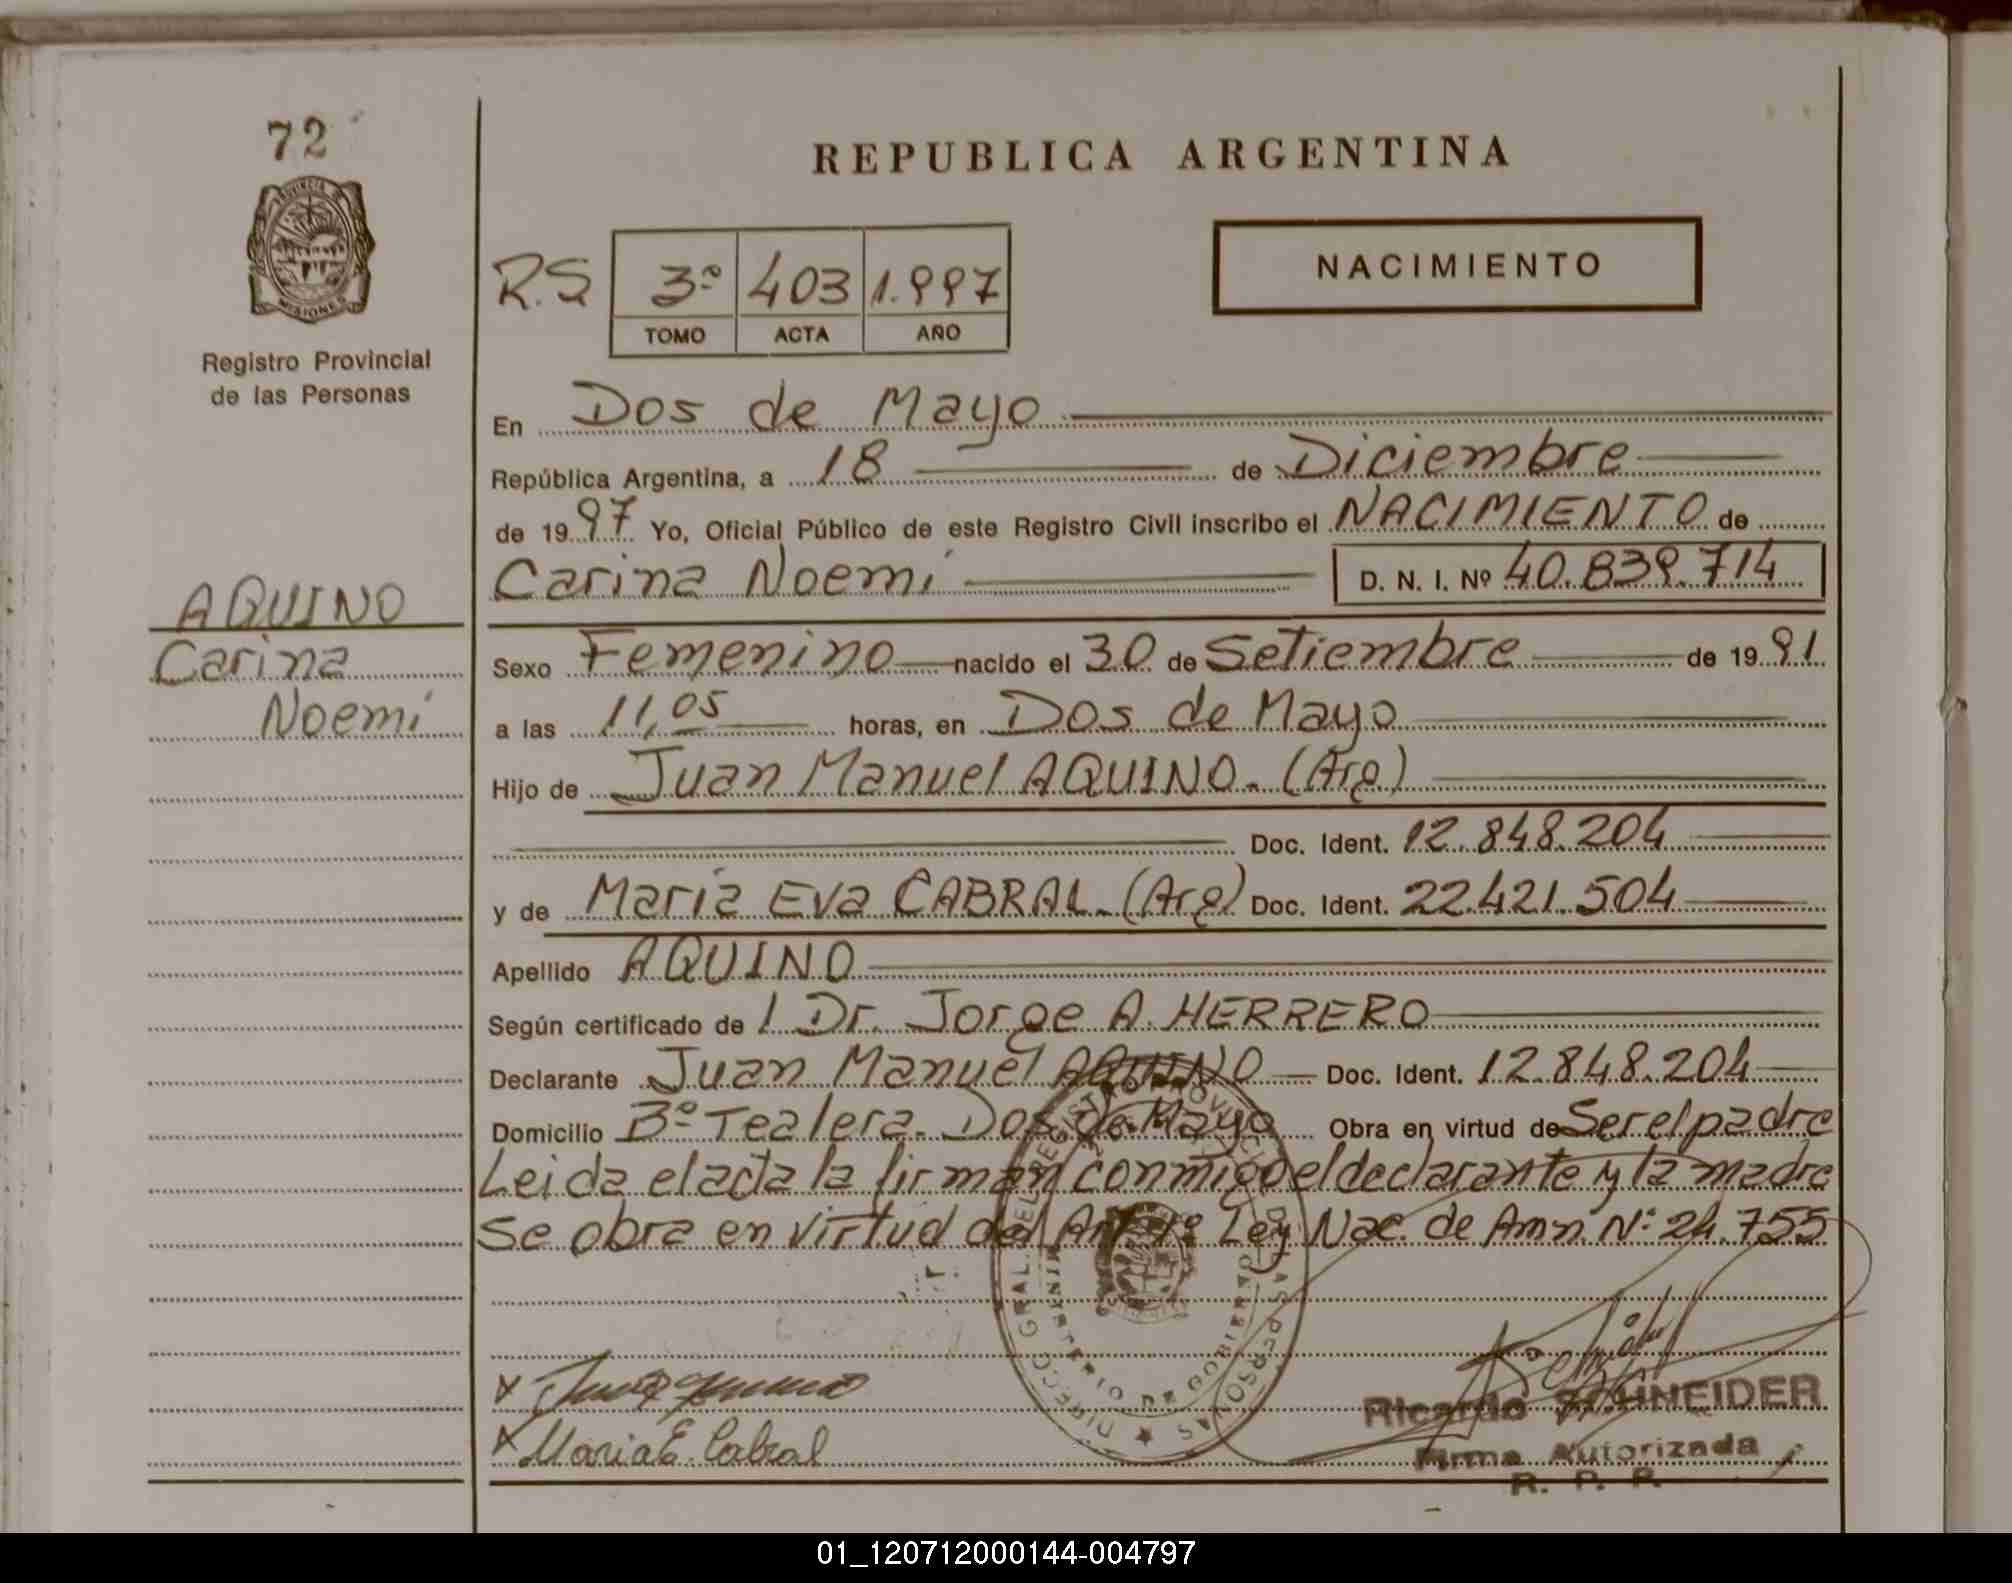 72
PROVINCIA DE
MISIONES
Registro Provincial
de las Personas
AQUINO
Carina
Noemí
REPUBLICA ARGENTINA
R.S 3º 403 1.997
TOMO ACTA AÑO
NACIMIENTO
En Dos de Mayo
República Argentina, a 18 de Diciembre
de 1997 Yo, Oficial Público de este Registro Civil inscribo el NACIMIENTO de
Carina Noemí D. N. I. Nº 40.839.714
Sexo Femenino nacido el 30 de Setiembre de 1991
a las 11,05 horas, en Dos de Mayo
Hijo de Juan Manuel AQUINO. (Arg)
Doc. Ident. 12.848.204
y de María Eva CABRAL. (Arg) Doc. Ident. 22.421.504
Apellido AQUINO
Según certificado de / Dr. Jorge A. HERRERO
Declarante Juan Manuel AQUINO Doc. Ident. 12.848.204
Domicilio Bº Tealera. Dos de Mayo Obra en virtud de Ser el padre
Leida el acta la firman conmigo el declarante y la madre
se obra en virtud del Art. 1º Ley Nac. de Amn. Nº 24.755
DIRECC. GRAL. DEL REGISTRO PROVINCIAL DE LAS PERSONAS
MINISTERIO DE GOBIERNO
x
x Maria E. Cabral
Ricardo SCHNEIDER
Firma Autorizada
R. P. P.
01_120712000144-004797